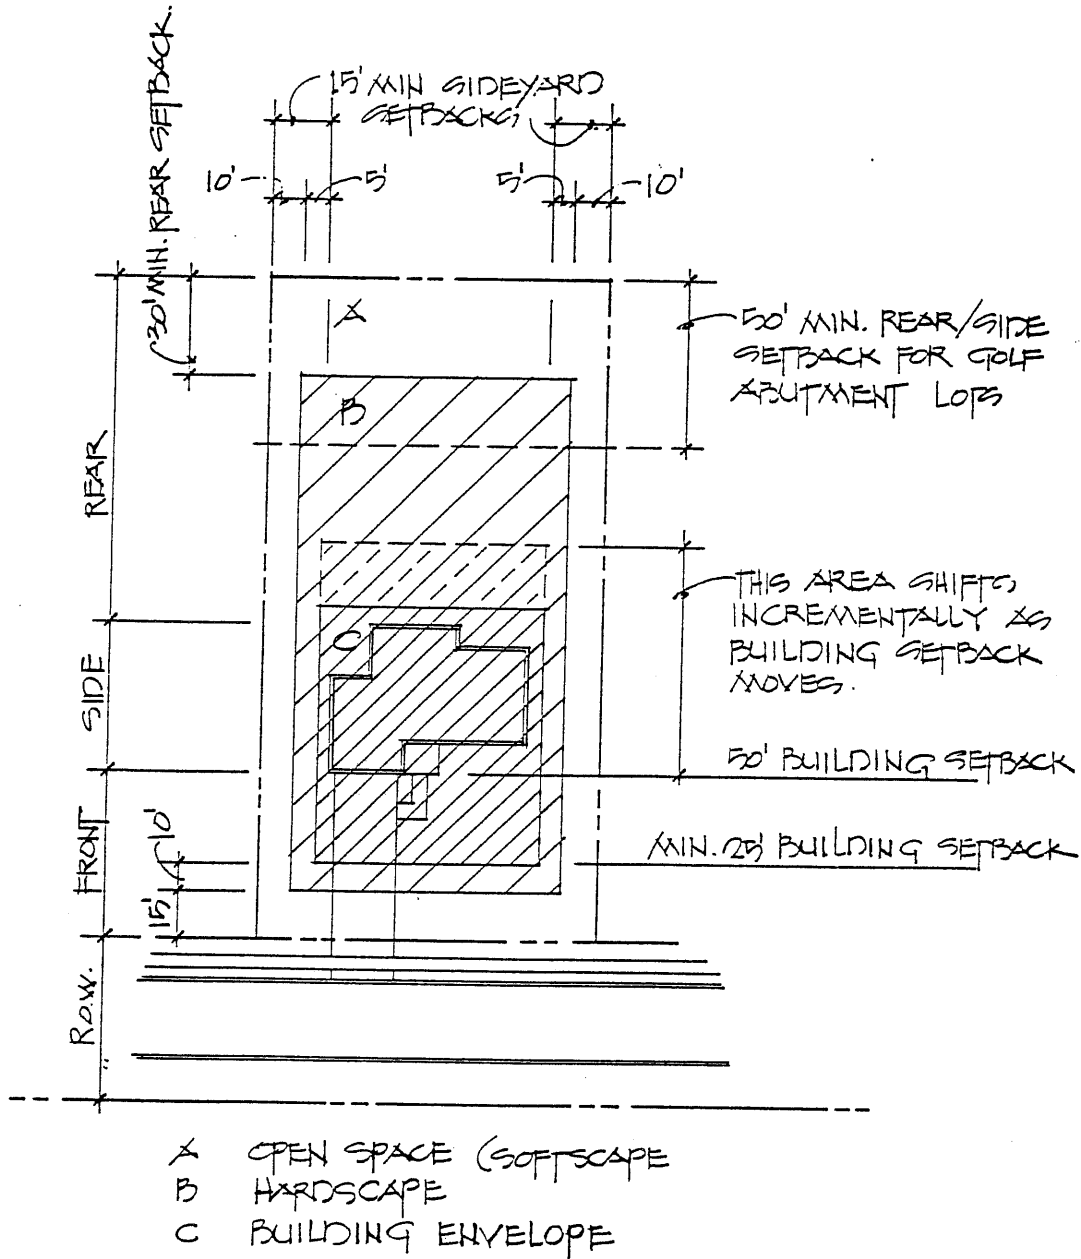 30' MIN. REAR SETBACK.
15' MIN SIDEYARD
SETBACKS
10'
5'
5'
10'
A
50' MIN. REAR/SIDE
SETBACK FOR GOLF
ABUTMENT LOTS
B
REAR
THIS AREA SHIFTS
INCREMENTALLY AS
BUILDING SETBACK
MOVES.
C
SIDE
50' BUILDING SETBACK
FRONT
10'
MIN. 25' BUILDING SETBACK
15'
R.O.W.
A OPEN SPACE (SOFTSCAPE
B HARDSCAPE
C BUILDING ENVELOPE